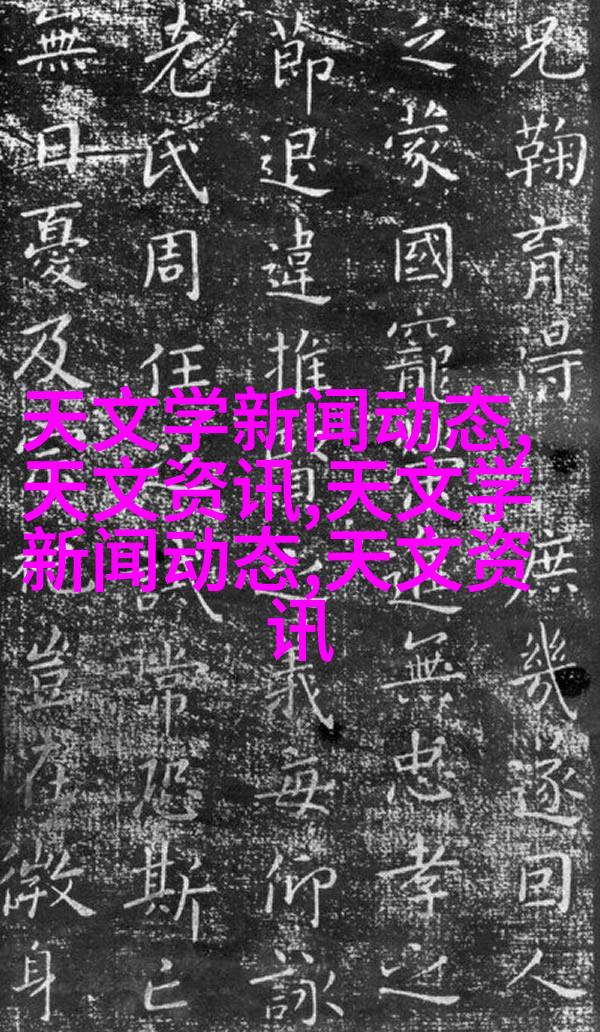 兄鞠育得庶幾遂回人
之蒙國寵近無忠孝之
節退違推義每仰詠
老氏周任常恐斯亡
無日憂及豈在微身
天文学新闻动态,
天文资讯,天文学
新闻动态,天文资
讯